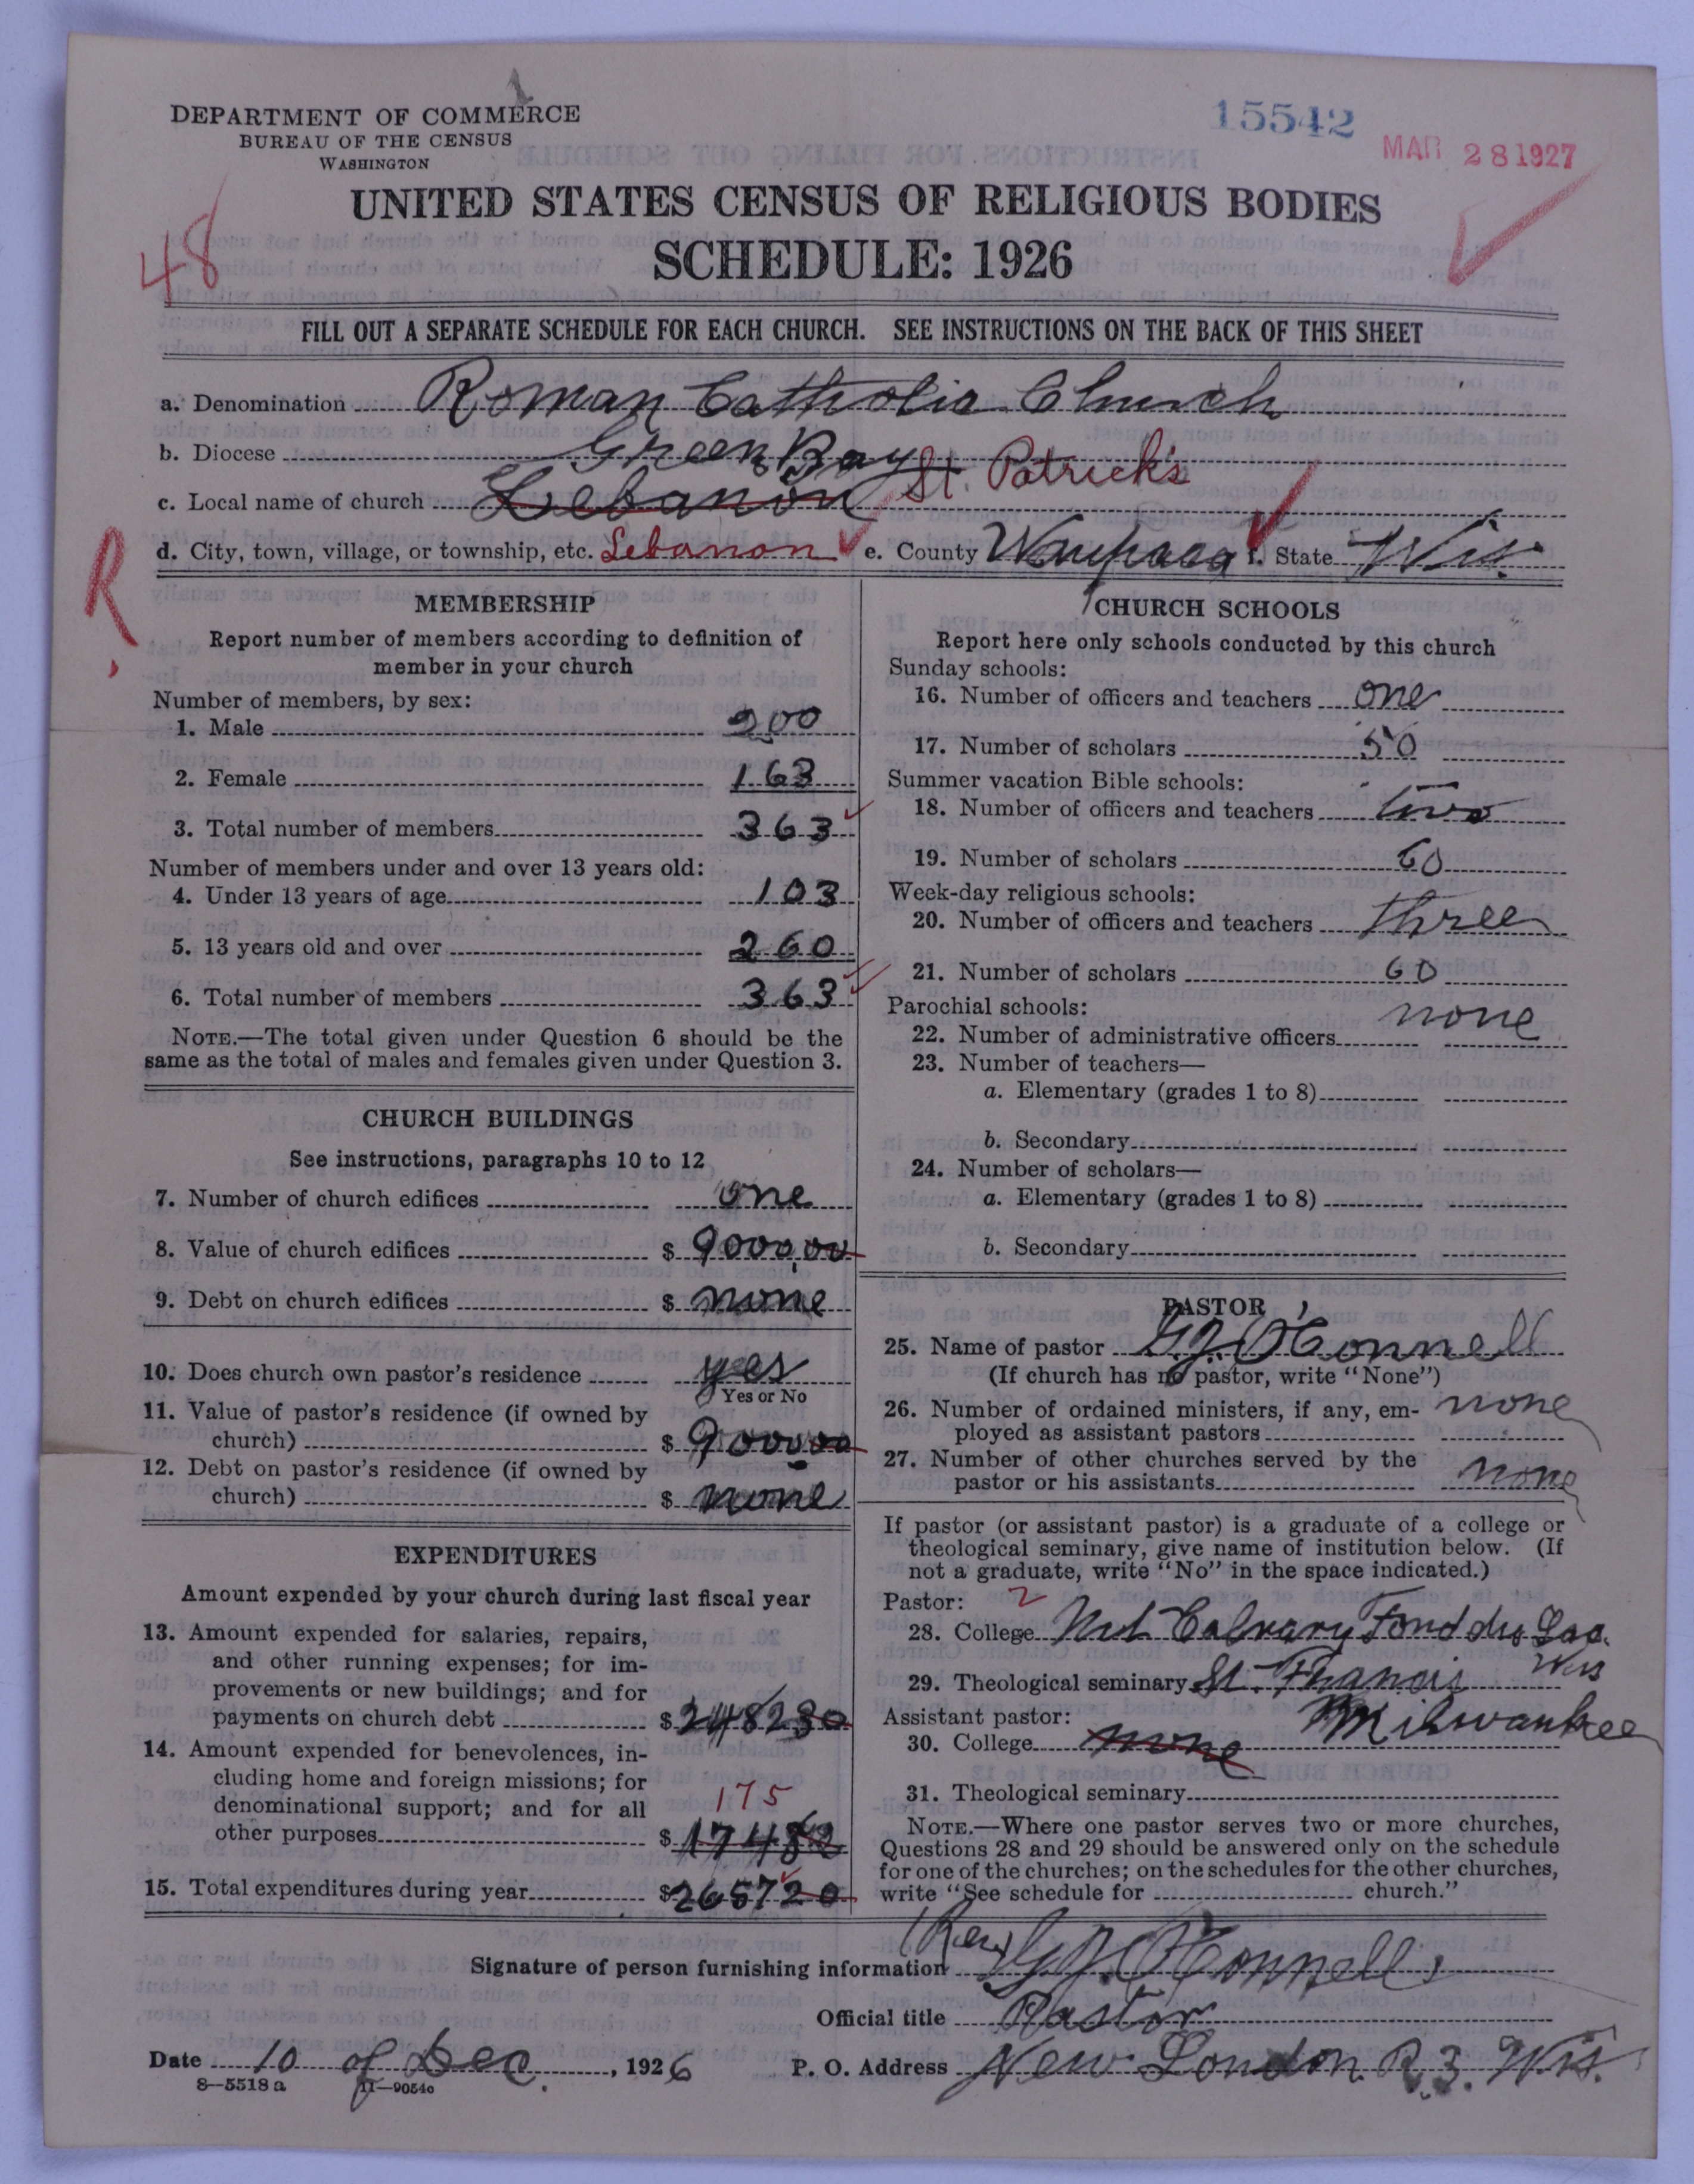 DEPARTMENT OF COMMERCE
BUREAU OF THE CENSUS
WASHINGTON
15542
MAR 28 1927
UNITED STATES CENSUS OF RELIGIOUS BODIES
SCHEDULE: 1926
48
FILL OUT A SEPARATE SCHEDULE FOR EACH CHURCH. SEE INSTRUCTIONS ON THE BACK OF THIS SHEET
a. Denomination Roman Catholic Church
b. Diocese Green Bay
c. Local name of church Lebanon St. Patrick's
d. City, town, village, or township, etc. Lebanon e. County Waupaca f. State Wis.
R
MEMBERSHIP
Report number of members according to definition of
member in your church
Number of members, by sex:
1. Male 200
2. Female 163
3. Total number of members 363
Number of members under and over 13 years old:
4. Under 13 years of age 103
5. 13 years old and over 260
6. Total number of members 363
NOTE.—The total given under Question 6 should be the
same as the total of males and females given under Question 3.
CHURCH BUILDINGS
See instructions, paragraphs 10 to 12
7. Number of church edifices one
8. Value of church edifices $ 9000,00
9. Debt on church edifices $ none
10. Does church own pastor's residence yes
Yes or No
11. Value of pastor's residence (if owned by
church) $ 9000,00
12. Debt on pastor's residence (if owned by
church) $ none
EXPENDITURES
Amount expended by your church during last fiscal year
13. Amount expended for salaries, repairs,
and other running expenses; for im-
provements or new buildings; and for
payments on church debt $ 248230
14. Amount expended for benevolences, in-
cluding home and foreign missions; for
denominational support; and for all 175
other purposes $ 17482
15. Total expenditures during year $ 265720
CHURCH SCHOOLS
Report here only schools conducted by this church
Sunday schools:
16. Number of officers and teachers one
17. Number of scholars 50
Summer vacation Bible schools:
18. Number of officers and teachers two
19. Number of scholars 60
Week-day religious schools:
20. Number of officers and teachers three
21. Number of scholars 60
Parochial schools:
22. Number of administrative officers none
23. Number of teachers—
a. Elementary (grades 1 to 8)
b. Secondary
24. Number of scholars—
a. Elementary (grades 1 to 8)
b. Secondary
PASTOR
25. Name of pastor O'Connell
(If church has no pastor, write "None")
26. Number of ordained ministers, if any, em- none
ployed as assistant pastors
27. Number of other churches served by the
pastor or his assistants none
If pastor (or assistant pastor) is a graduate of a college or
theological seminary, give name of institution below. (If
not a graduate, write "No" in the space indicated.)
Pastor: 2
28. College Mt Calvary Fond du Lac.
Wis
29. Theological seminary St. Francis
Milwaukee
Assistant pastor:
30. College none
31. Theological seminary
NOTE.—Where one pastor serves two or more churches,
Questions 28 and 29 should be answered only on the schedule
for one of the churches; on the schedules for the other churches,
write "See schedule for church."
Signature of person furnishing information (Rev) O'Connell
Official title Pastor
Date 10 of Dec., 1926 P. O. Address New London R 3. Wis.
8—5518a 11—9054c